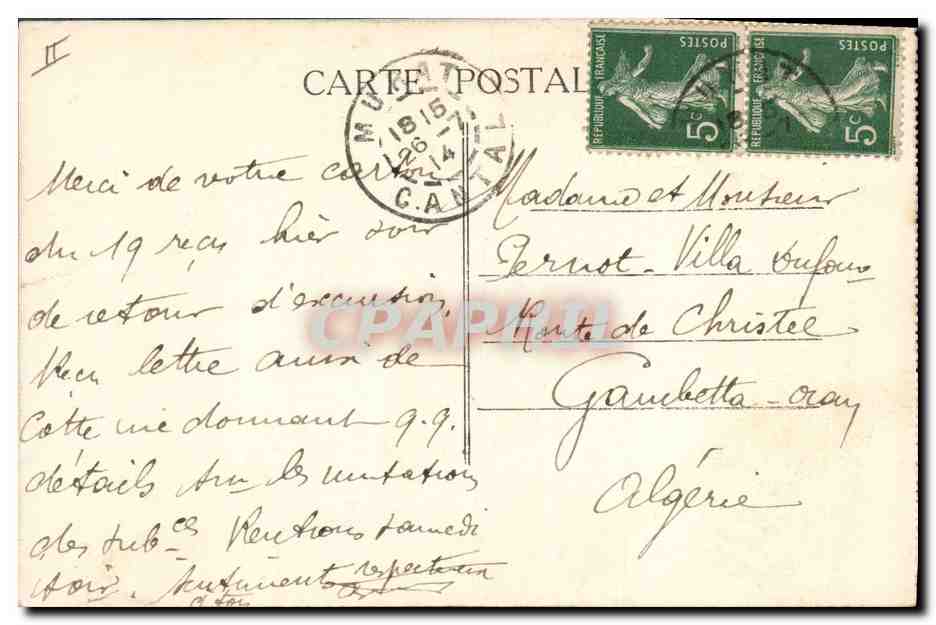 II
CARTE POSTALE
MURAT
18 15
26 - 7
14
CANTAL
RÉPUBLIQUE FRANÇAISE
POSTES
5c
RÉPUBLIQUE FRANÇAISE
POSTES
5c
Merci de votre carton
du 19 reçu hier soir
de retour d'excursion.
Reçu lettre aussi de
Cotte me donnant q.q.
détails sur les mutations
des sub-ces Rentrons samedi
soir. Sentiments respectueux
à tous
Madame et Monsieur
Pernot - Villa Dufour
Route de Christel
Gambetta - Oran
Algérie
CPAPHIL